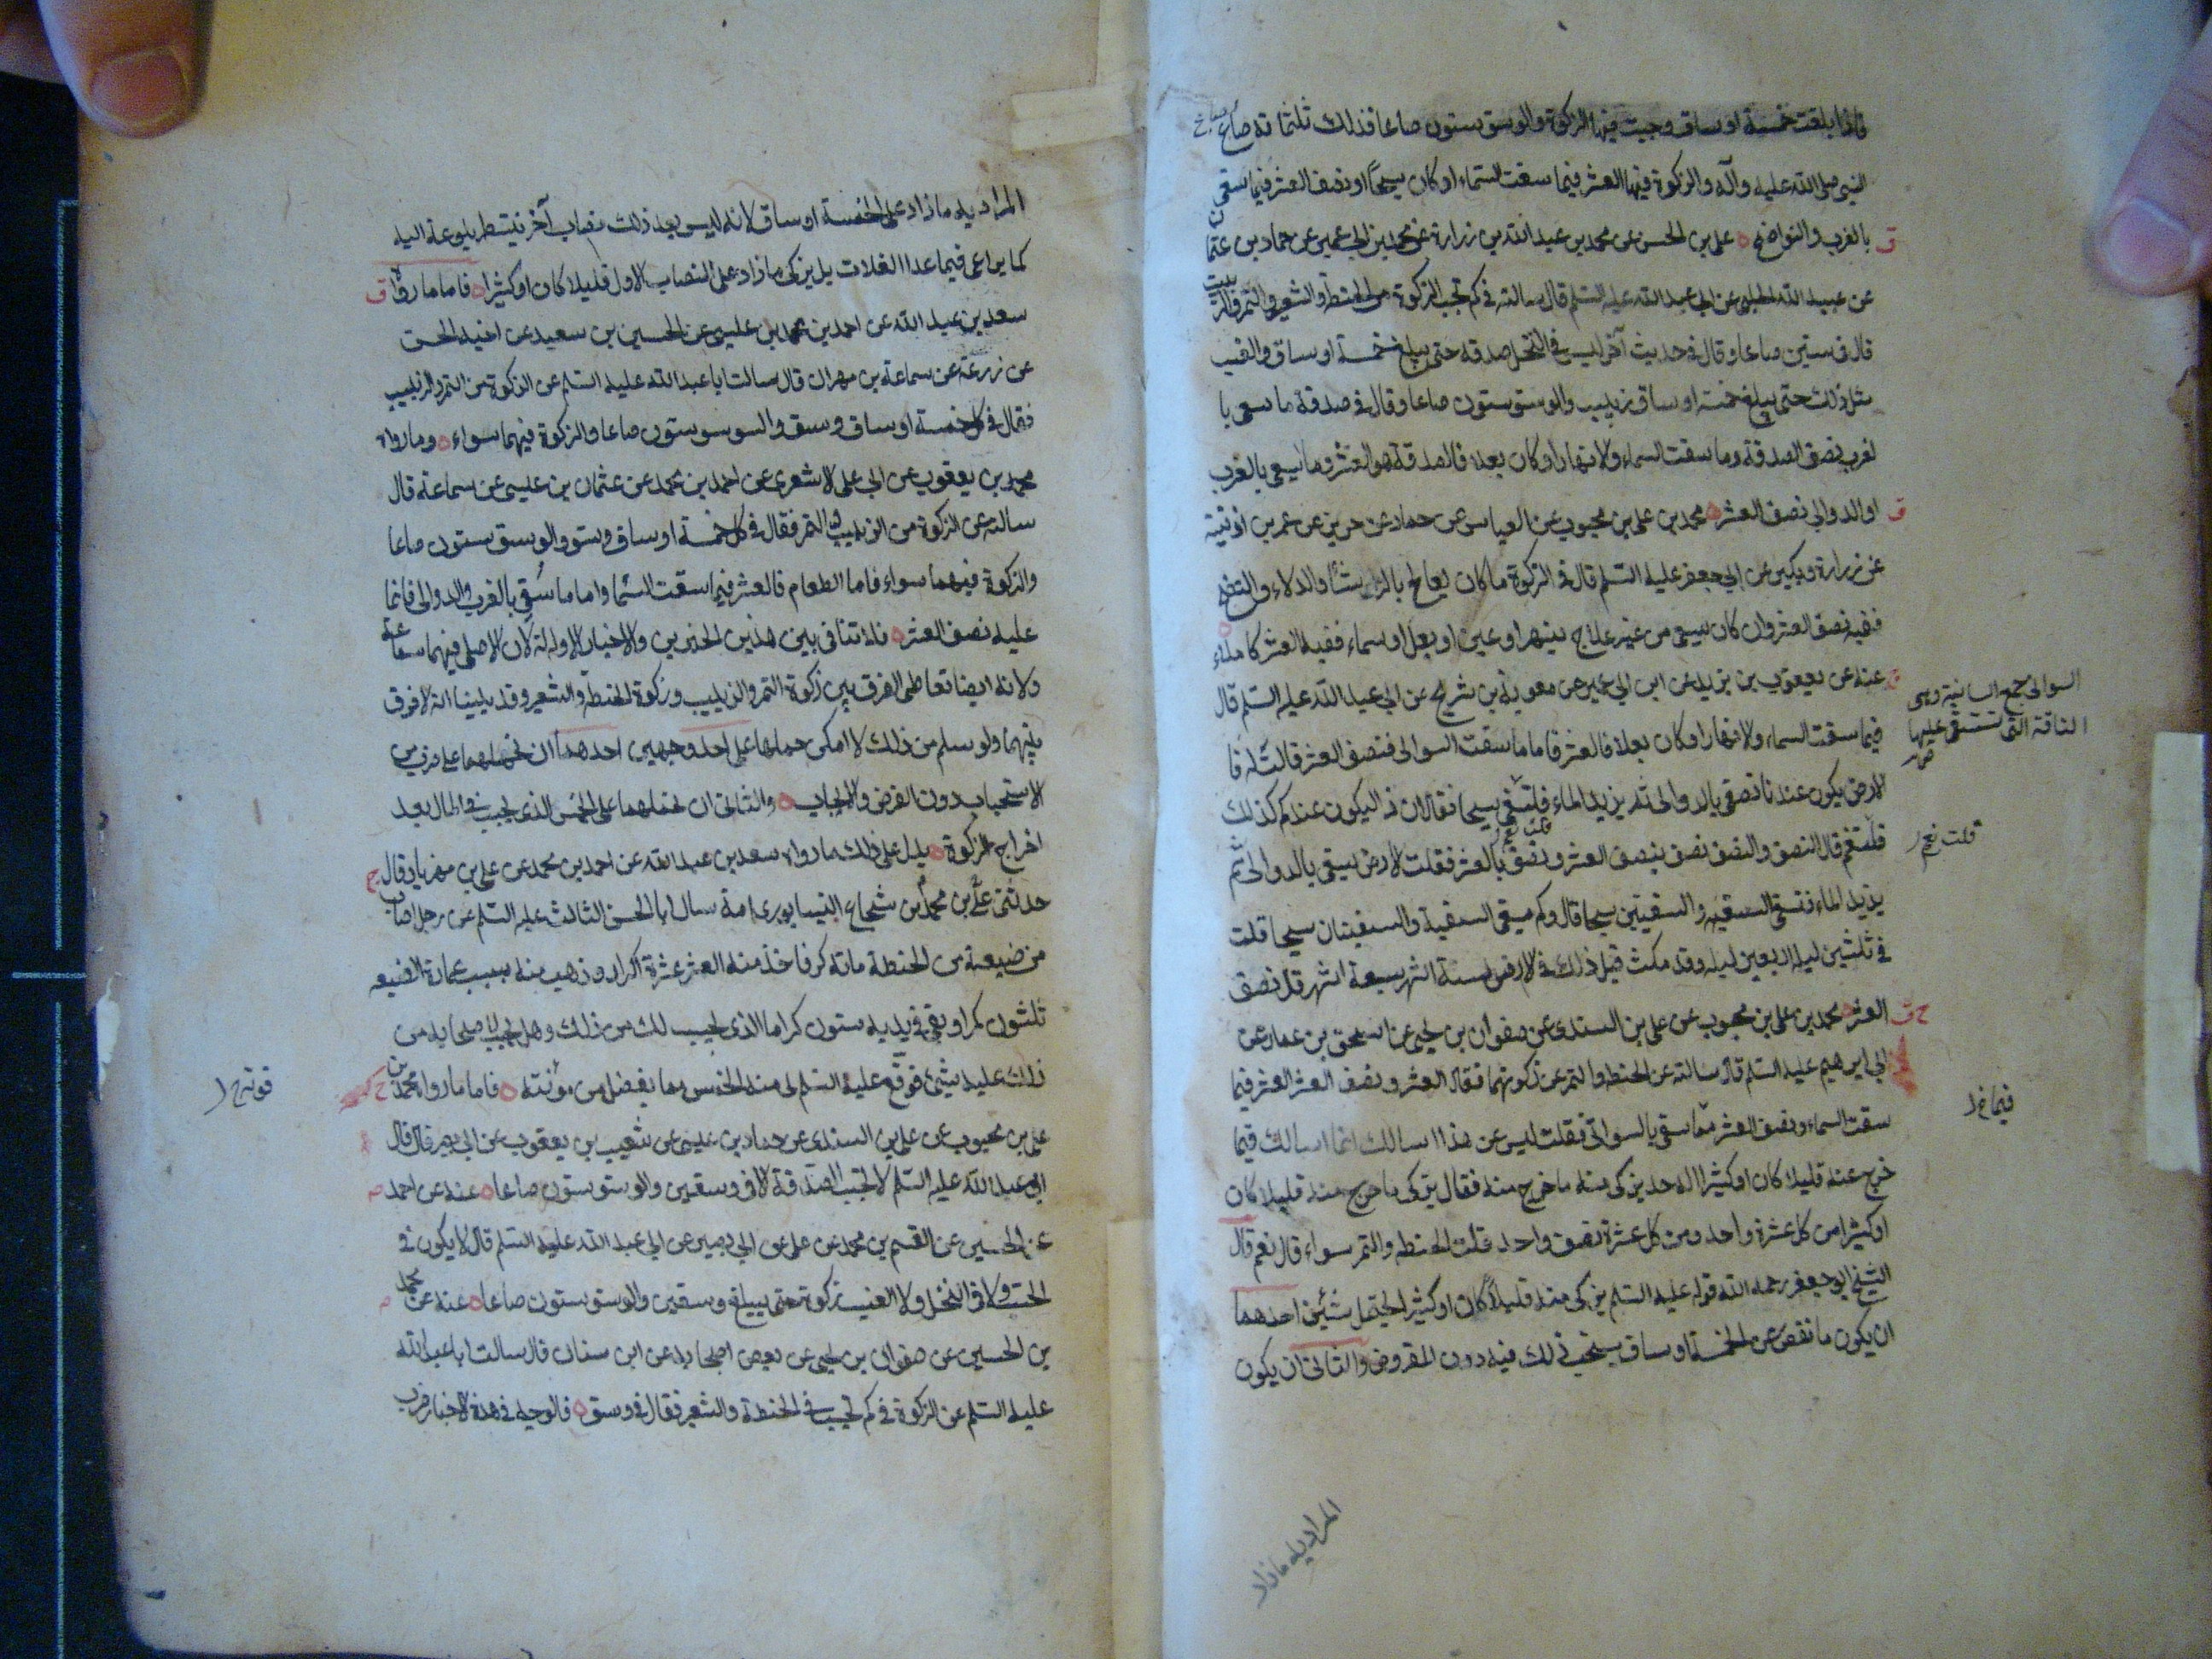 فاذا بلغت خمسة اوساق وجبت فيها الزكوة والوسق ستون صاعا فذلك ثلثمائة صاع بصاع
النبي صلى الله عليه وآله والزكوة فيها العشر فيما سقت السماء او كان سيحا او نصف العشر فيما سقى
بالغرب والنواضح علي بن الحسن عن محمد بن عبيد الله بن زرارة عن محمد بن ابي عمير عن حماد بن عثمان
عن عبيد الله الحلبي عن ابي عبد الله عليه السلم قال سالته في كم تجب الزكوة من الحنطة والشعير والتمر والزبيب
قال في ستين صاعا وقال في حديث آخر ليس في النخل صدقة حتى يبلغ خمسة اوساق والعنب
مثل ذلك حتى يبلغ خمسة اوساق زبيب والوسق ستون صاعا وقال في صدقة ما سقى با
لغرب نصف الصدقة وما سقت السماء والانهار او كان بعلا فالصدقة هو العشر وما سقى بالغرب
او الدوالي نصف العشر محمد بن علي بن محبوب عن العباس عن حماد عن حريز عن عمر بن اذينة
عن زرارة وبكير عن ابي جعفر عليه السلم قال في الزكوة ما كان يعالج بالرشا والدلاء والنضح
ففيه نصف العشر وان كان يسقى من غير علاج بنهر او عين او بعل او سماء ففيه العشر كاملا
عنه عن يعقوب بن يزيد عن ابن ابي عمير عن معوية بن شريح عن ابي عبد الله عليه السلم قال
السوانى جمع السانية وهى
الناقة التى تستقى عليها
فيما سقت السماء والانهار او كان بعلا فالعشر فاما ما سقت السوانى فنصف العشر قالت له فا
لارض يكون عندنا تسقى بالدوالى ثم يزيد الماء فتسقى سيحا فقال ان ذا ليكون عندكم كذلك
قلت نعم قال النصف والنصف نصف بنصف العشر ونصف بالعشر فقلت الارض يسقى بالدوالى ثم
قلت نعم
يزيد الماء فتسقى السقية والسقيتين سيحا قال وكم يسقى السقية والسقيتان سيحا قلت
في ثلثين ليلة اربعين ليلة وقد مكث قبل ذلك في الارض ستة اشهر سبعة اشهر قال نصف
العشر محمد بن علي بن محبوب عن علي بن السندى عن صفوان بن يحيى عن اسحق بن عمار عن
ابي ابرهيم عليه السلم قال سالته عن الحنطة والتمر عن زكوتهما فقال العشر ونصف العشر العشر فيما
سقت السماء ونصف العشر مما سقى بالسوانى فقلت ليس عن هذا اسالك انما اسالك فيما
خرج عنه قليلا كان او كثيرا اله حد يزكى منه ما خرج منه فقال يزكى ما خرج منه قليلا كان
او كثيرا من كل عشرة واحد ومن كل عشرة نصف واحد قلت الحنطه والتمر سواء قال نعم قال
الشيخ ابو جعفر رحمه الله قوله عليه السلم يزكى منه قليلا كان او كثيرا يحتمل شيئين احدهما
ان يكون ما نقص عن الخمسة اوساق يستحب ذلك فيه دون المفروض والثانى ان يكون
المراد به ما زاد
المراد به ما زاد على الخمسة اوساق لانه ليس بعد ذلك نصاب آخر ينتظر بلوغه اليه
كما يراعى فيما عدا الغلات بل يزكى ما زاد على النصاب الاول قليلا كان او كثيرا فاما ما رواه
سعد بن عبد الله عن احمد بن محمد بن عيسى عن الحسين بن سعيد عن اخيه الحسن
عن زرعة عن سماعة بن مهران قال سالت ابا عبد الله عليه السلم عن الزكوة من التمر والزبيب
فقال في كل خمسة اوساق وسق والوسق ستون صاعا والزكوة فيهما سواء وما رواه
محمد بن يعقوب عن ابي علي الاشعرى عن احمد بن محمد عن عثمان بن عيسى عن سماعة قال
سالته عن الزكوة من الزبيب والتمر فقال في كل خمسة اوساق وسق والوسق ستون صاعا
والزكوة فيهما سواء فاما الطعام فالعشر فيما سقت السما واما ما سقى بالغرب والدوالى فانما
عليه نصف العشر فلا تنافى بين هذين الخبرين والاخبار الاولة لان الاصل فيهما سماعة
ولانه ايضا تعاطى الفرق بين زكوة التمر والزبيب وزكوة الحنطة والشعير وقد بينا انه لا فرق
بينهما ولو سلم من ذلك لامكن حملها على احد وجهين احدهما ان نحملهما على ضرب من
الاستحباب دون الفرض والايجاب والثانى ان نحملهما على الخمس الذى يجب فى المال بعد
اخراج الزكوة يدل على ذلك ما رواه سعد بن عبد الله عن احمد بن محمد عن علي بن مهزيار قال
حدثنى علي بن محمد بن شجاع النيسابورى انه سال ابا الحسن الثالث عليه السلم عن رجل اصاب
من ضيعته من الحنطة مائة كر فاخذ منه العشر عشرة اكرار وذهب منه بسبب عمارة الضيعه
ثلثون كرا وبقى في يديه ستون كرا ما الذى يجب لك من ذلك وهل يجب لاصحابه من
ذلك عليه شئ فوقع عليه السلم لى منه الخمس مما يفضل من مؤنته فاما ما رواه محمد بن
علي بن محبوب عن علي بن السندى عن حماد بن عيسى عن شعيب بن يعقوب عن ابي بصير قال قال
ابو عبد الله عليه السلم لا تجب الصدقة الا في وسقين والوسق ستون صاعا عنه عن احمد
عن الحسين عن القسم بن محمد عن علي عن ابي بصير عن ابي عبد الله عليه السلم قال لا يكون في
الحب ولا في النخل ولا العنب زكوة حتى يبلغ وسقين والوسق ستون صاعا عنه عن محمد
بن الحسين عن صفوان بن يحيى عن بعض اصحابه عن ابن سنان قال سالت ابا عبد الله
عليه السلم عن الزكوة في كم تجب في الحنطة والشعير فقال في وسق فالوجه في هذه الاخبار ضرب